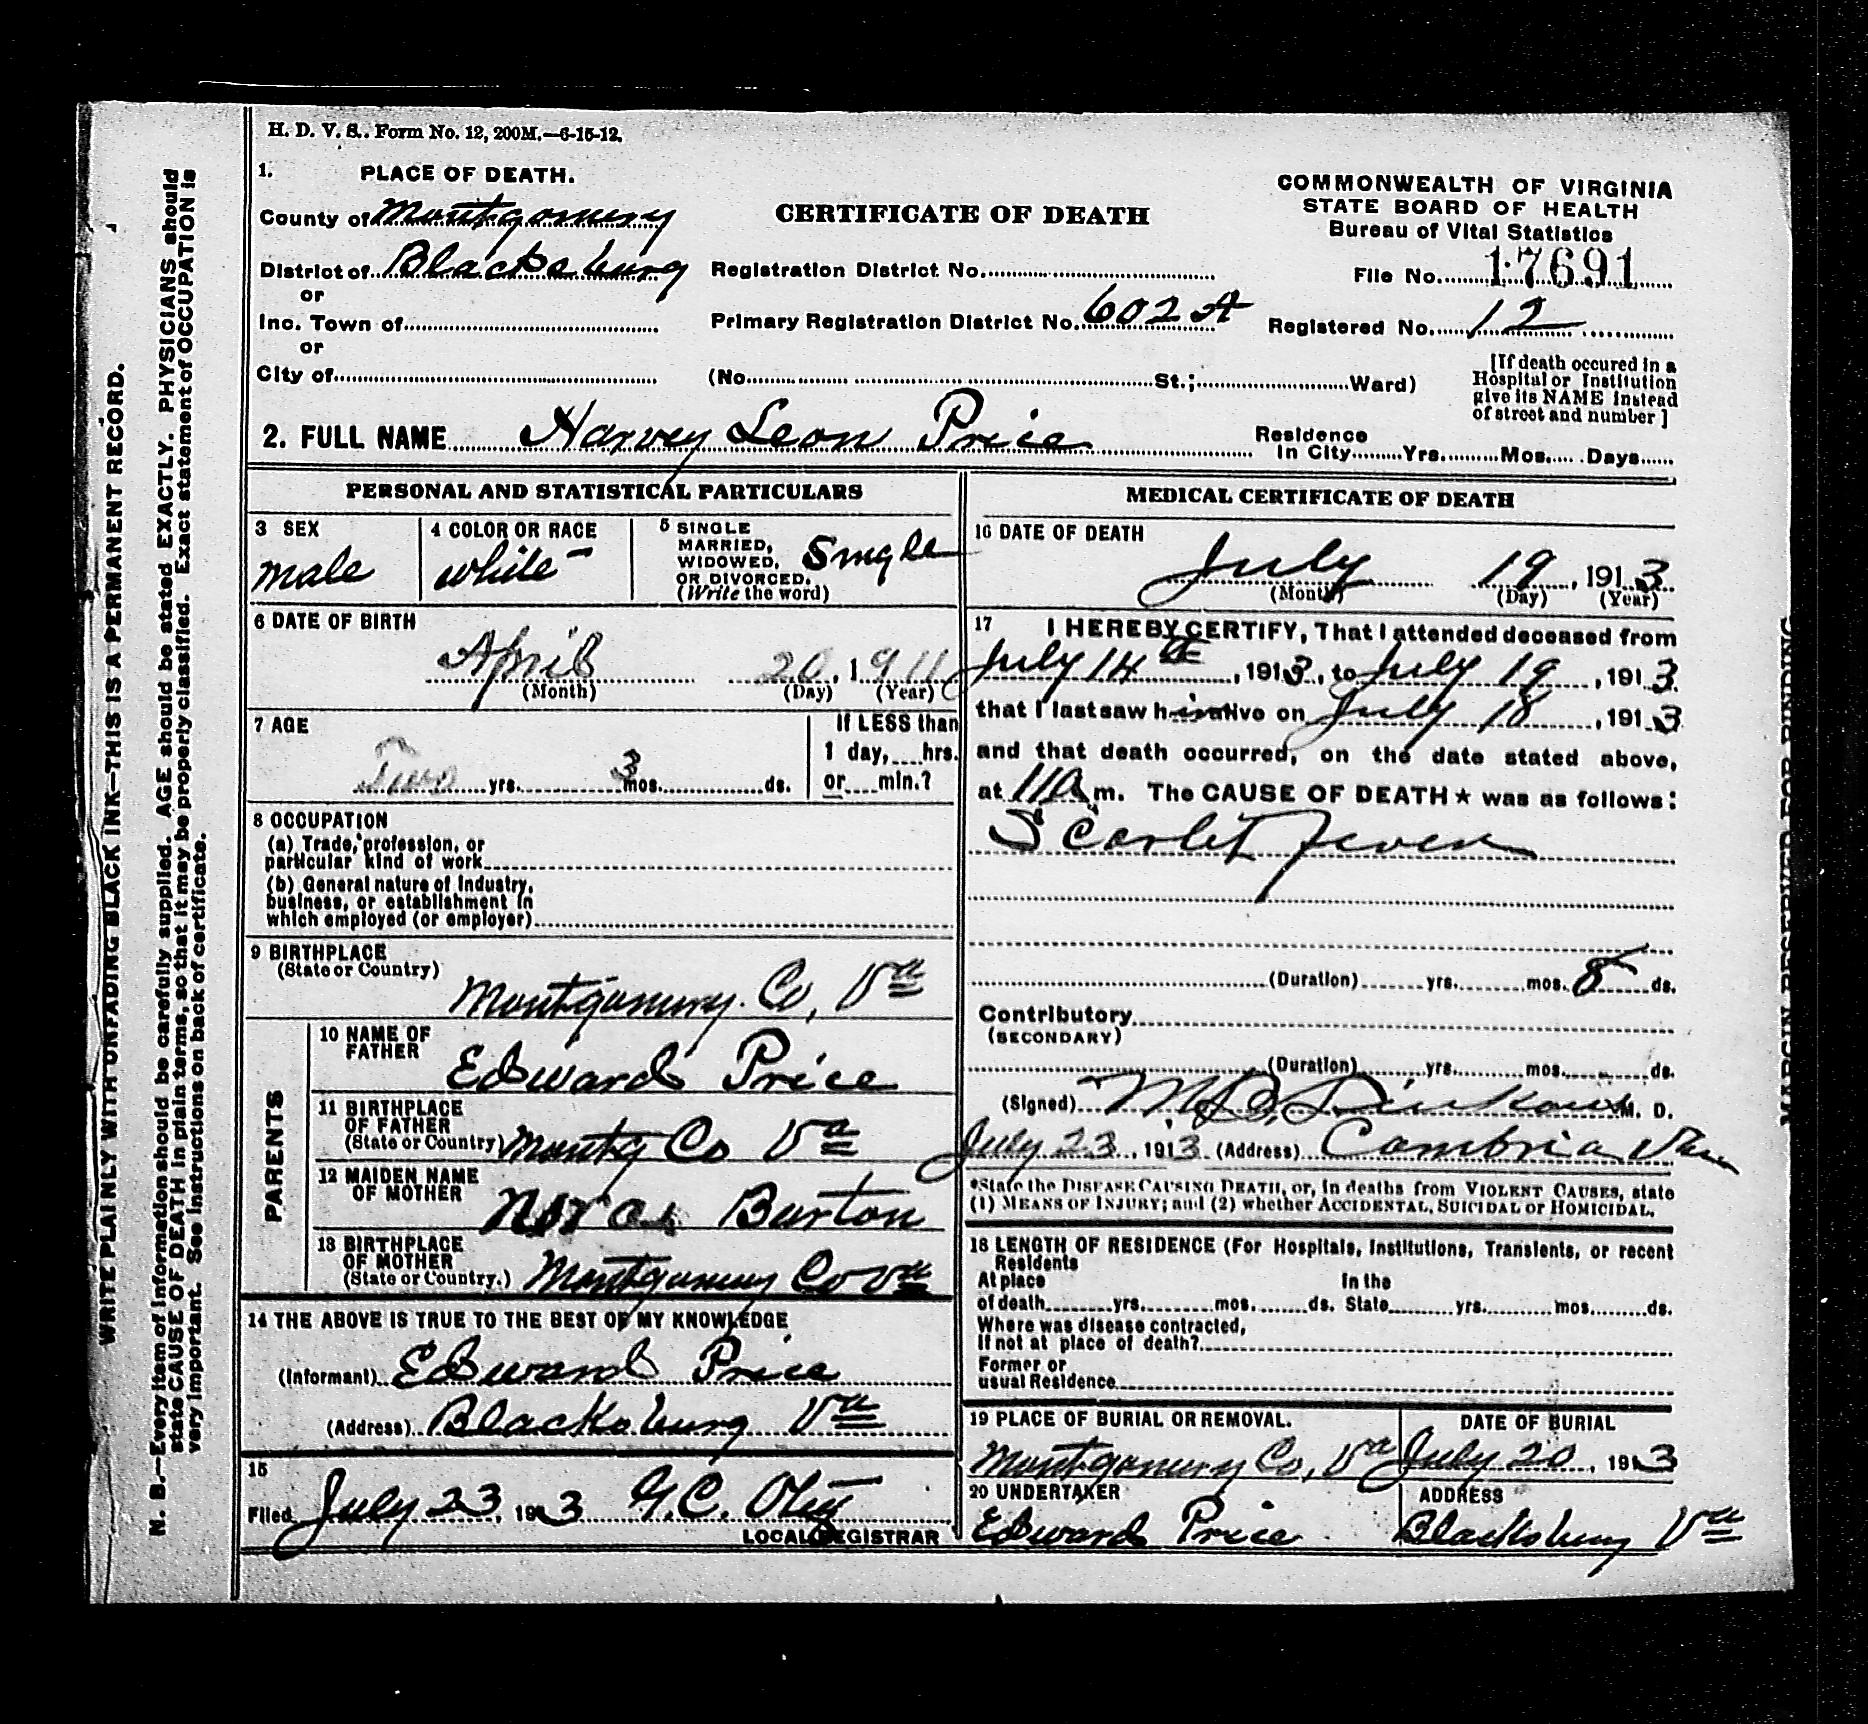 H. D. V. S.. Form No. 12, 200M.—6-15-12.
1. PLACE OF DEATH.
County of Montgomery
District of Blacksburg
or
Inc. Town of
or
City of
CERTIFICATE OF DEATH
Registration District No.
Primary Registration District No. 602 A
(No. St.; Ward)
COMMONWEALTH OF VIRGINIA
STATE BOARD OF HEALTH
Bureau of Vital Statistics
File No. 17691
Registered No. 12
[If death occured in a
Hospital or Institution
give its NAME instead
of street and number ]
2. FULL NAME Harvey Leon Price
Residence
In City Yrs. Mos. Days
PERSONAL AND STATISTICAL PARTICULARS
3 SEX
male
4 COLOR OR RACE
white
5 SINGLE
MARRIED,
WIDOWED,
OR DIVORCED.
(Write the word)
Single
6 DATE OF BIRTH
April 20, 1911
(Month) (Day) (Year)
7 AGE
Two yrs. 3 mos. ds.
If LESS than
1 day, hrs.
or min.?
8 OCCUPATION
(a) Trade, profession, or
particular kind of work
(b) General nature of Industry,
business, or establishment in
which employed (or employer)
9 BIRTHPLACE
(State or Country)
Montgomery Co, Va
PARENTS
10 NAME OF
FATHER
Edward Price
11 BIRTHPLACE
OF FATHER
(State or Country) Montg Co Va
12 MAIDEN NAME
OF MOTHER
Burton
13 BIRTHPLACE
OF MOTHER
(State or Country.) Montgomery Co Va
14 THE ABOVE IS TRUE TO THE BEST OF MY KNOWLEDGE
(Informant) Edward Price
(Address) Blacksburg Va
15
Filed July 23, 1913 G. C.
LOCAL REGISTRAR
MEDICAL CERTIFICATE OF DEATH
16 DATE OF DEATH
July 19, 1913
(Month) (Day) (Year)
17 I HEREBY CERTIFY, That I attended deceased from
July 14th, 1913, to July 19, 1913
that I last saw him alive on July 18, 1913
and that death occurred, on the date stated above,
at 11a m. The CAUSE OF DEATH★ was as follows:
Scarlet Fever
(Duration) yrs. mos. 8 ds.
Contributory
(SECONDARY)
(Duration) yrs. mos. ds.
(Signed) M. D.
July 23, 1913 (Address) Cambria Va
*State the DISEASE CAUSING DEATH, or, in deaths from VIOLENT CAUSES, state
(1) MEANS OF INJURY; and (2) whether ACCIDENTAL, SUICIDAL or HOMICIDAL.
18 LENGTH OF RESIDENCE (For Hospitals, Institutions, Transients, or recent
Residents
At place In the
of death yrs. mos. ds. State yrs. mos. ds.
Where was disease contracted,
If not at place of death?
Former or
usual Residence
19 PLACE OF BURIAL OR REMOVAL.
Montgomery Co, Va
DATE OF BURIAL
July 20, 1913
20 UNDERTAKER
Edward Price
ADDRESS
Blacksburg Va
WRITE PLAINLY WITH UNFADING BLACK INK—THIS IS A PERMANENT RECORD.
N. B.—Every item of information should be carefully supplied. AGE should be stated EXACTLY. PHYSICIANS should
state CAUSE OF DEATH in plain terms, so that it may be properly classified. Exact statement of OCCUPATION is
very important. See Instructions on back of certificate.
MARGIN RESERVED FOR BINDING